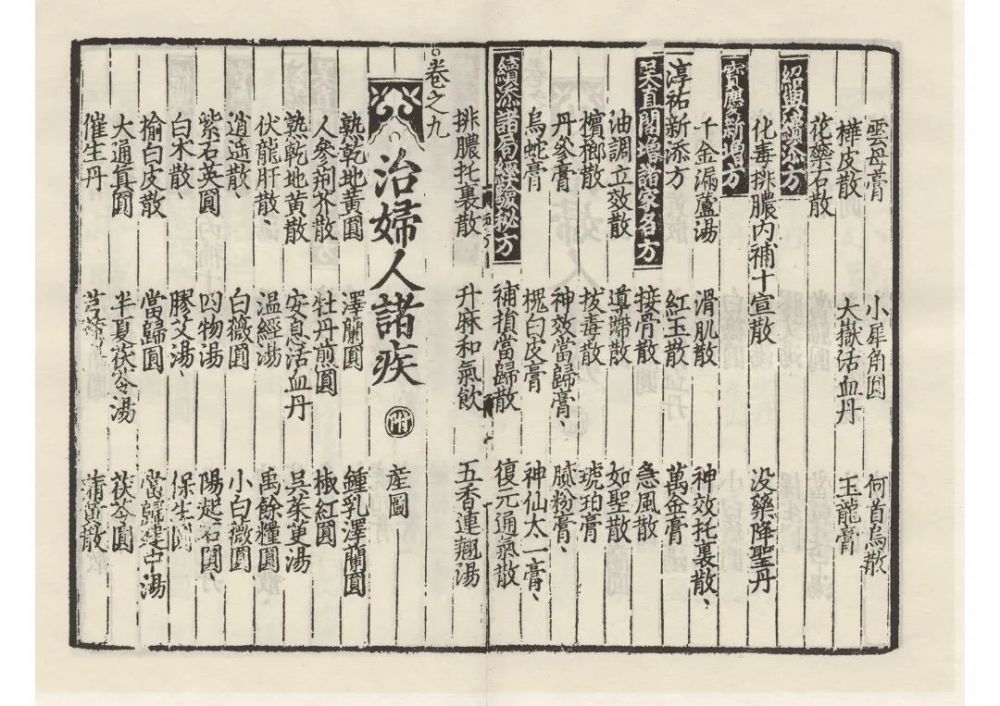 雲母膏 小犀角圓 何首烏散
樺皮散 大嶽活血丹 玉龍膏
花藥石散
紹興續添方
化毒排膿內補十宣散 没藥降聖丹
寳應新增方
千金漏蘆湯 滑肌散 神效托裏散
淳祐新添方 紅玉散 萬金膏
吴直閣增諸家名方 接骨散 急風散
油調立效散 導滯散 如聖散
檳榔散 拔毒散 琥珀膏
丹參膏 神效當歸膏 膩粉膏
烏蛇膏 槐白皮膏 神仙太一膏
續添諸局經驗秘方 補損當歸散 復元通氣散
排膿托裏散 升麻和氣飲 五香連翹湯
卷之九
治婦人諸疾 附 產圖
熟乾地黄圓 澤蘭圓 鍾乳澤蘭圓
人參荊芥散 牡丹煎圓 椒紅圓
熟乾地黄散 安息活血丹 吴茱更湯
伏龍肝散 温經湯 禹餘糧圓
逍遥散 白薇圓 小白薇圓
紫石英圓 四物湯 陽起石圓
白术散 膠艾湯 保生圓
榆白皮散 當歸圓 當歸建中湯
大通真圓 半夏茯苓湯 茯苓圓
催生丹 蒲黄散